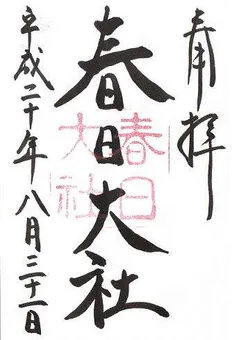 奉拝
春日大社
春日
大社
平成二十年八月三十一日